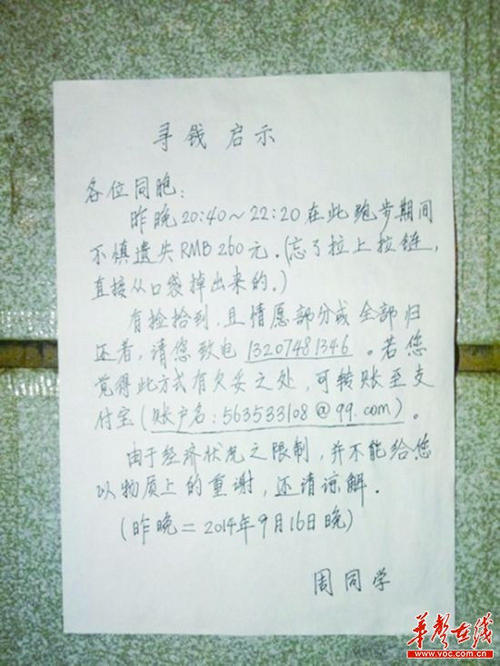 寻钱启示
各位同胞:
昨晚20:40~22:20在此跑步期间
不慎遗失RMB 260元.(忘了拉上拉链,
直接从口袋掉出来的.)
有捡拾到,且情愿部分或全部归
还者,请您致电 13207481346 。若您
觉得此方式有欠妥之处,可转账至支
付宝(账户名:563533108@qq.com)。
由于经济状况之限制,并不能给您
以物质上的重谢,还请谅解.
(昨晚=2014年9月16日晚)
周同学
华声在线
www.voc.com.cn